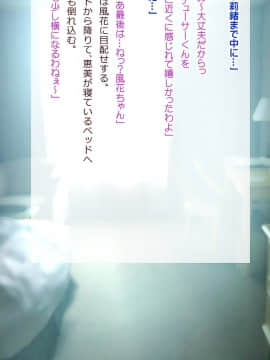 莉緒まで中に…」
～大丈夫だからっ
デューサーくんを
に近くに感じれて嬉しかったわよ」
…」
あ最後は…ねっ?風花ちゃん」
は風花に目配せする。
トから降りて、恵美が寝ているベッドへ
も倒れ込む。
少し横になるわねぇ～」